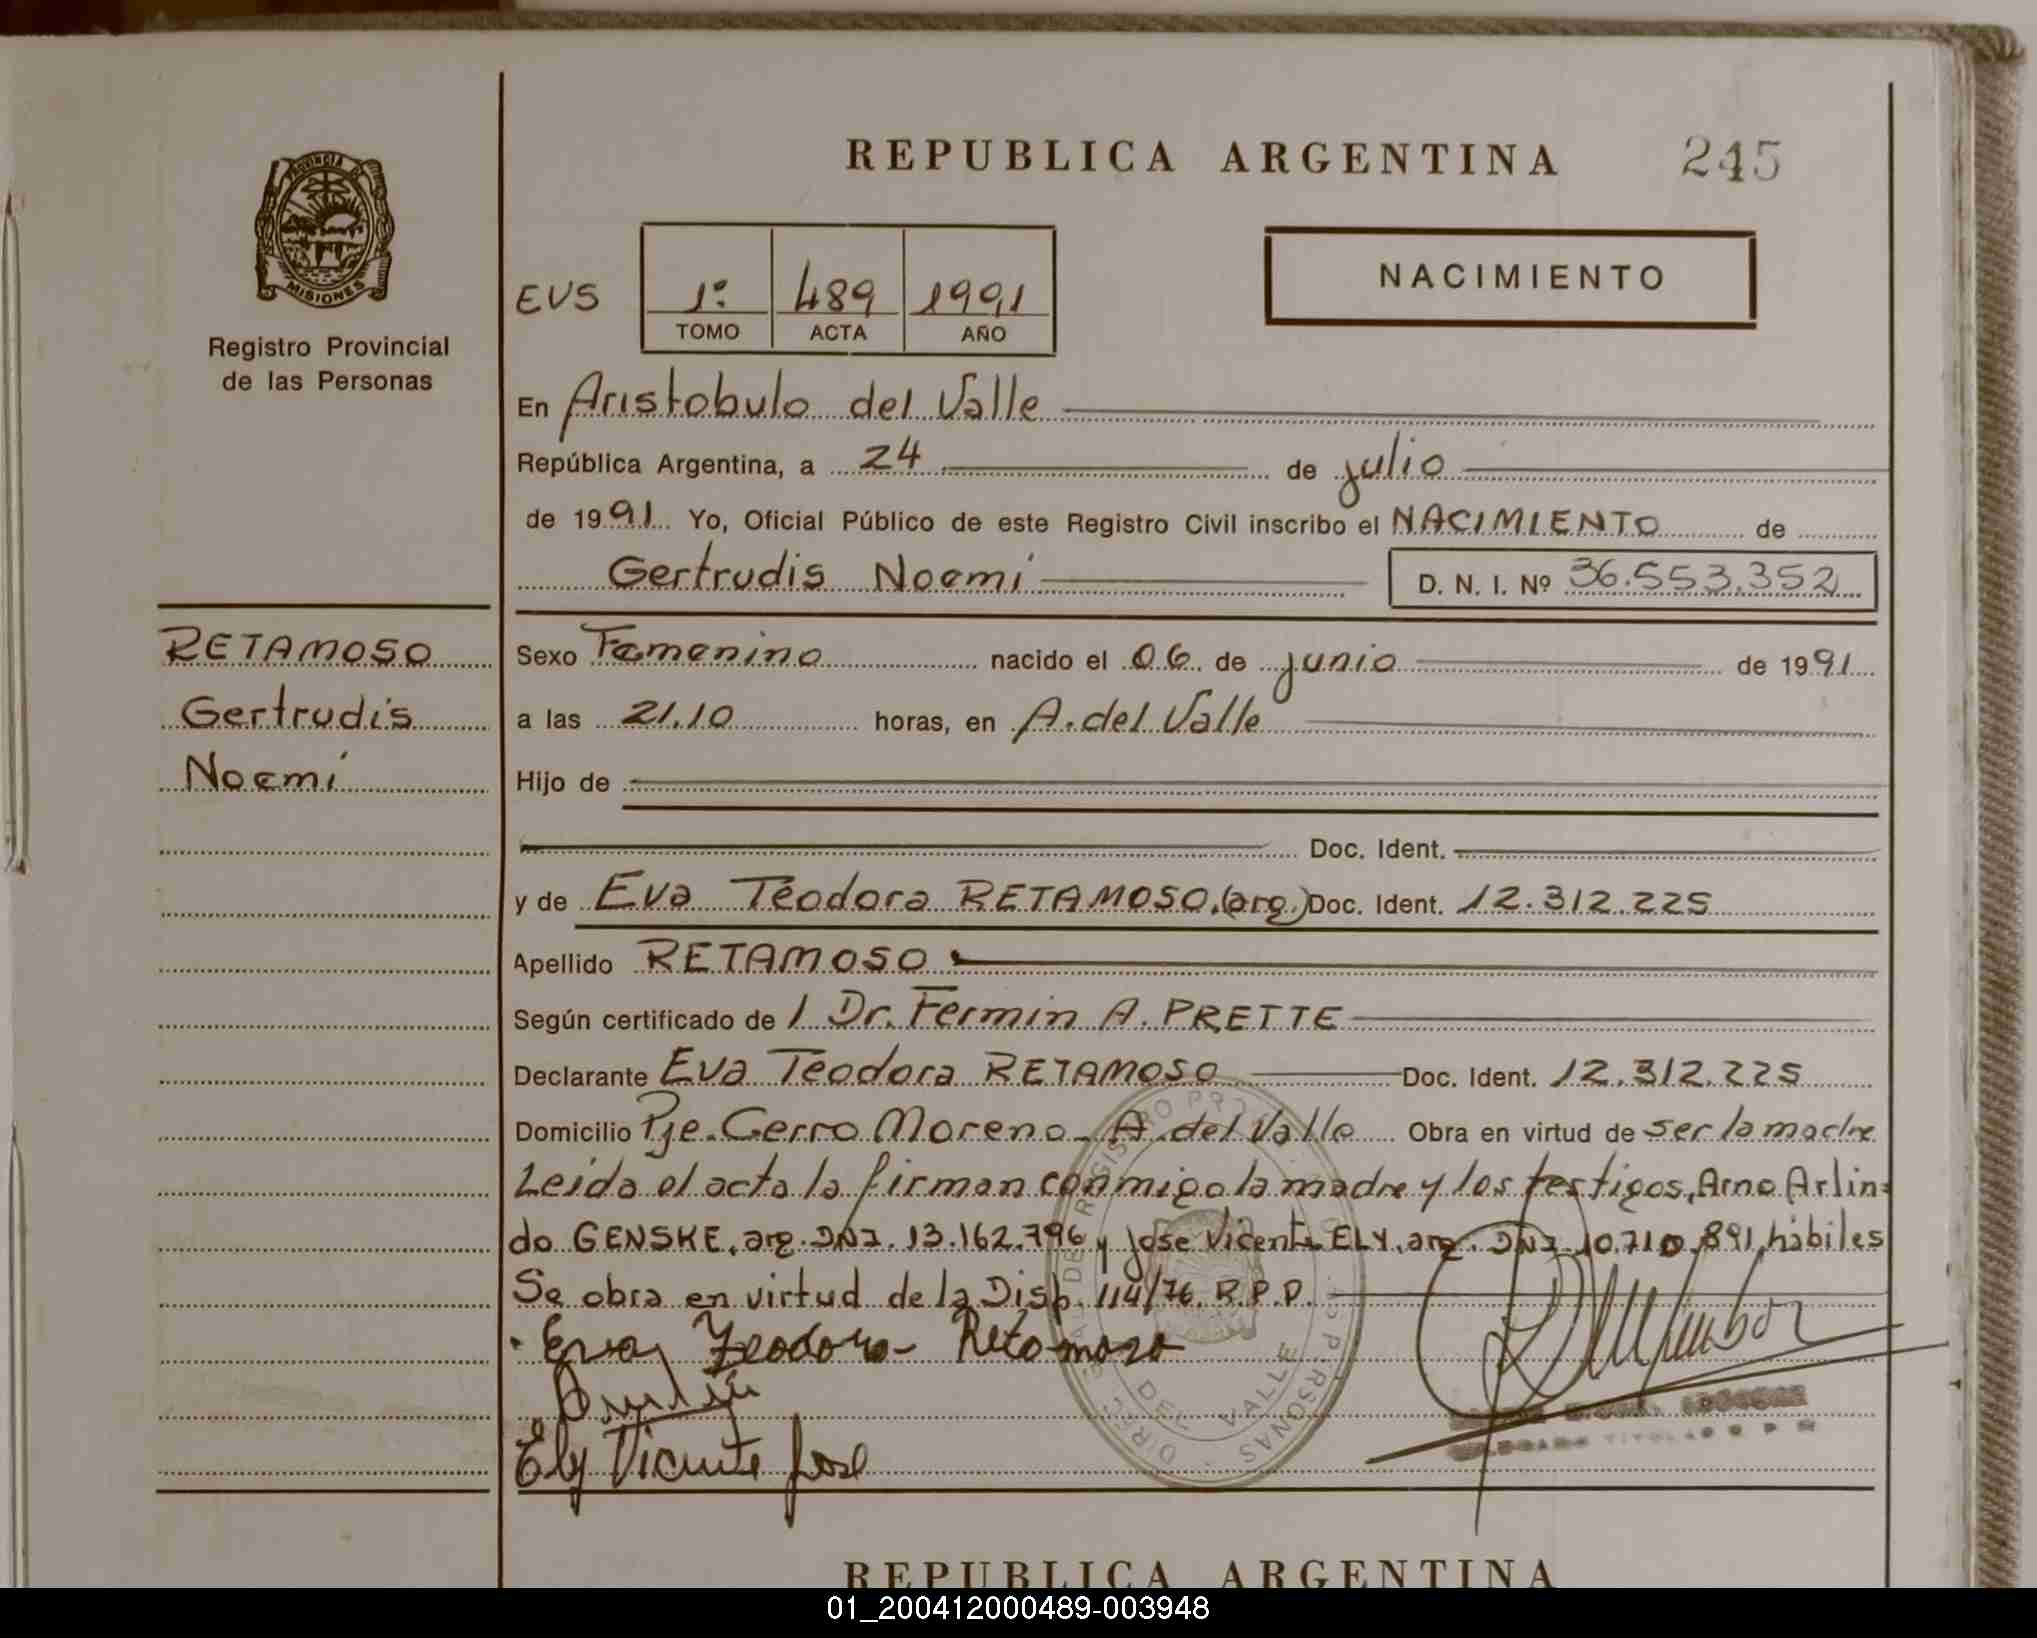 REPUBLICA ARGENTINA 245
PROVINCIA DE
MISIONES
Registro Provincial
de las Personas
EVS 1º 489 1991
TOMO ACTA AÑO
NACIMIENTO
En Aristobulo del Valle
República Argentina, a 24 de julio
de 1991 Yo, Oficial Público de este Registro Civil inscribo el NACIMIENTO de
Gertrudis Noemi D. N. I. Nº 36.553.352
RETAMOSO
Gertrudis
Noemi
Sexo Femenino nacido el 06 de junio de 1991
a las 21.10 horas, en A. del Valle
Hijo de
Doc. Ident.
y de Eva Teodora RETAMOSO.(arg.) Doc. Ident. 12.312.225
Apellido RETAMOSO
Según certificado de / Dr. Fermin A. PRETTE
Declarante Eva Teodora RETAMOSO Doc. Ident. 12.312.225
Domicilio Pje. Cerro Moreno - A. del Valle Obra en virtud de ser la madre
Leida el acta la firman conmigo la madre y los testigos, Arno Arlin=
do GENSKE, arg. DNI. 13.162.796 y Jose Vicente ELY, arg. DNI 10.710.891, hábiles
Se obra en virtud de la Disp. 114/76. R.P.P.
Eva Teodora Retamozo
Ely Vicente Jose
DEL VALLE
REPUBLICA ARGENTINA
01_200412000489-003948